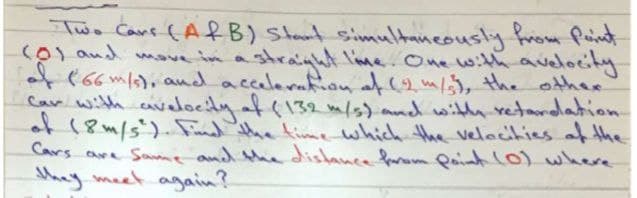 Two Cars (A & B) Start simultaneously from Point
(O) and move in a straight line. One with a velocity
of (66 m/s), and acceleration of (2 m/s²), the other
car with a velocity of (132 m/s) and with retardation
of (8 m/s²). Find the time which the velocities of the
Cars are Same and the distance from Point (O) where
they meet again?